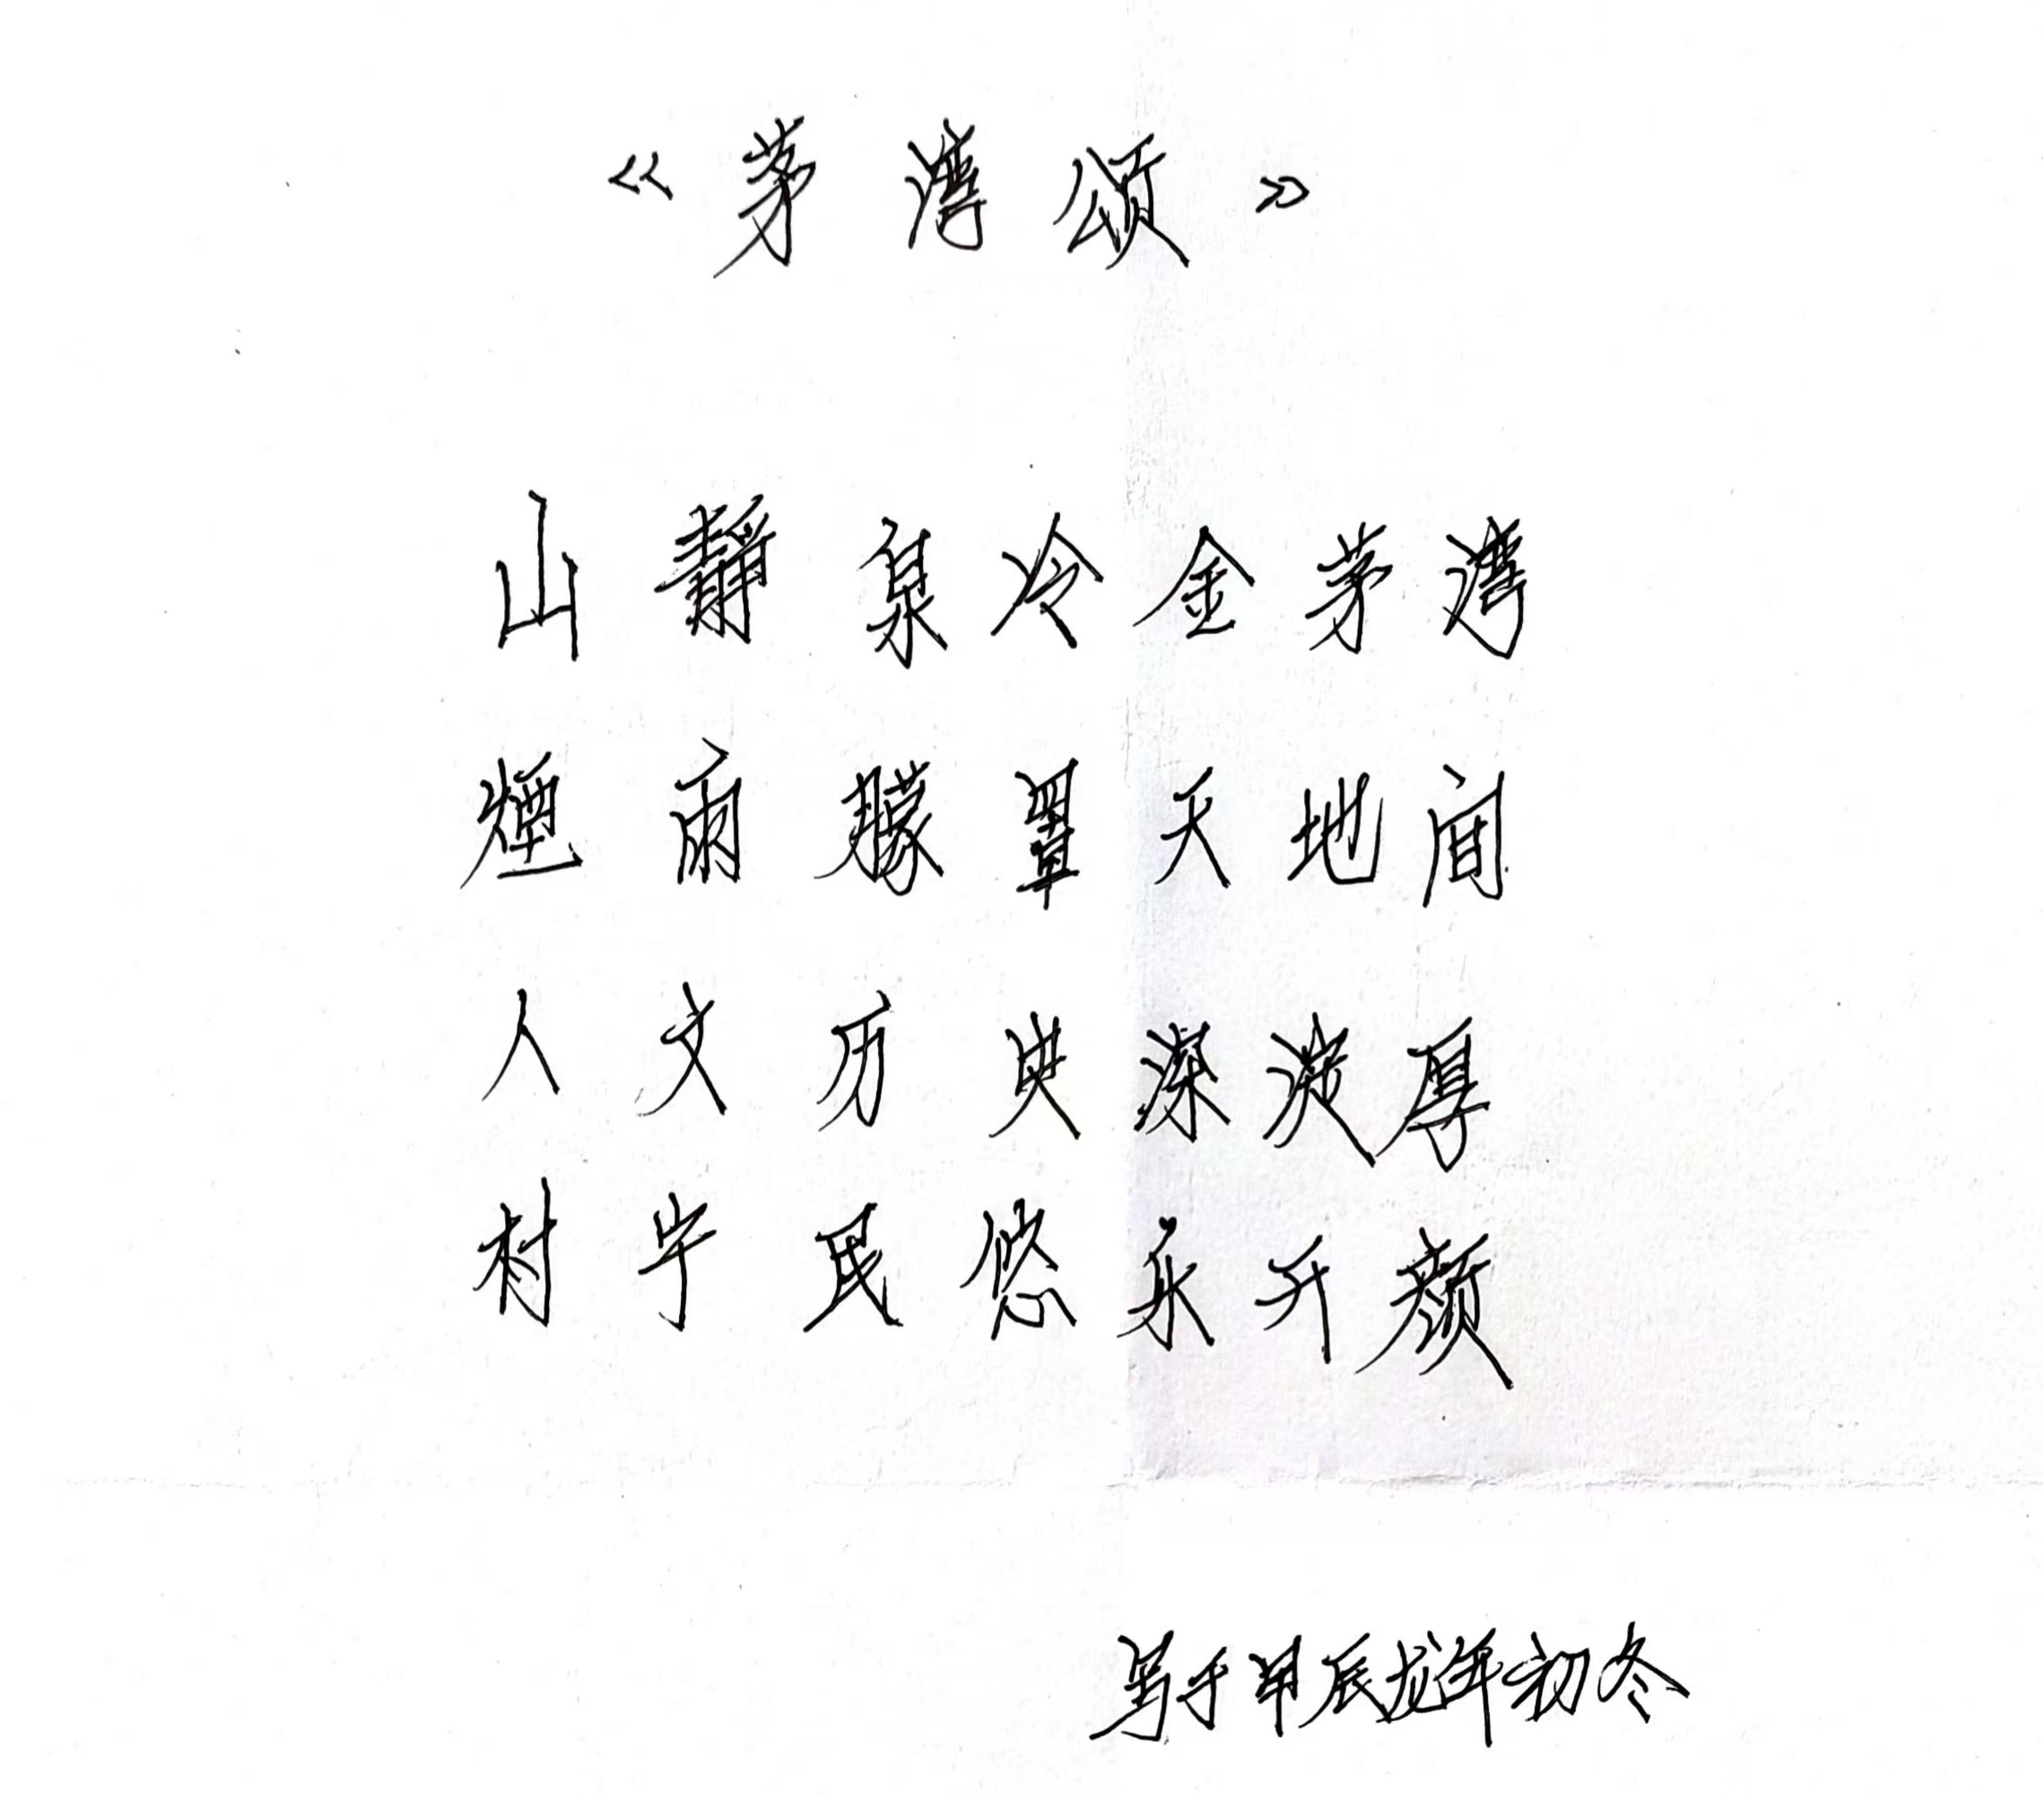 《茅湾颂》
山静泉冷金茅湾
煙雨朦罩天地间
人文历史深淀厚
村宁民悠永升颜
写于甲辰龙年初冬